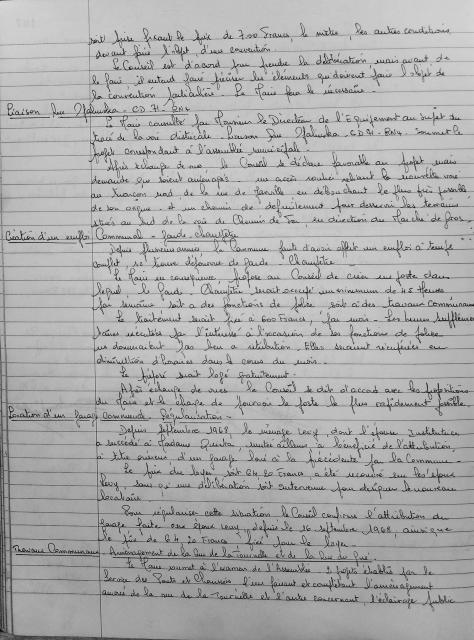 soit faire fixant le prix de 7.00 Francs, le mètre, les autres conditions
devant faire l'objet d'une convention.
Le Conseil est d'accord pour prendre la délibération, mais avant de
le faire, il entend faire préciser les éléments qui doivent faire l'objet de
la convention particulière. Le Maire fera le nécessaire.
Liaison Rue - CD 71 - R04
Le Maire consulté par Monsieur le Directeur de l'Equipement au sujet du
tracé de la voie Rue - CD 71 - R04 - soumet le
projet correspondant à l'assemblée municipale.
Après échange de vues, le Conseil se déclare favorable au projet mais
demande que soient aménagés : un accès routier reliant la nouvelle voie
au tronçon nord de la rue de en débouchant le plus près possible
de son origine, et un chemin de pour desservir les terrains
situés au Sud de la voie de Chemin de Fer, en direction du Marché de Gros.
Création d'un emploi Communal - Garde-champêtre
Depuis plusieurs années, la Commune faute d'avoir offert un emploi à temps
complet, se trouve dépourvue de Garde Champêtre.
Le Maire en conséquence, propose au Conseil de créer un poste dans
lequel le Garde Champêtre serait occupé un minimum de 45 Heures
par semaine soit à des fonctions de police soit à des travaux communaux
Le traitement serait fixé à 600 Francs, par mois. Les heures supplémen-
taires exécutées par l'intéressé à l'occasion de ses fonctions de police
ne donneraient pas lieu à rétribution. Elles seraient récupérées en
diminution d'horaires dans le cours du mois.
Le préposé serait logé gratuitement.
Après échange de vues, le Conseil se dit d'accord avec les propositions
du Maire et le charge de pourvoir le poste le plus rapidement possible.
Location d'un garage communal - Régularisation -
Depuis Septembre 1968, le ménage Levy dont l'épouse Institutrice
a succédé à Madame a bénéficié de l'attribution,
à titre précaire d'un garage loué à la précédente par la Commune.
Le prix du loyer soit 64.20 Francs a été recouvré sur les époux
Levy, sans qu'une délibération soit intervenue pour désigner le nouveau
locataire.
Pour régulariser cette situation le Conseil confirme l'attribution du
garage faite aux époux Levy, depuis le 16 septembre 1968, ainsi que
le prix de 64.20 Francs fixé pour le loyer.
Travaux Communaux - Aménagement de la Rue de la Tournelle et de la Rue du Gué.
Le Maire soumet à l'examen de l'Assemblée 2 projets établis par le
Service des Ponts et Chaussées l'un faisant et complétant l'aménagement
amorcé de la rue de la Tournelle et l'autre concernant, l'éclairage public